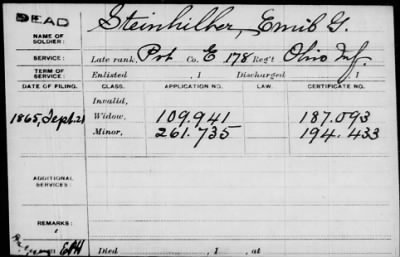 DEAD
NAME OF SOLDIER: Steinhilber, Emil G.
SERVICE: Late rank, Pvt Co. E 178 Reg't Ohio Inf.
TERM OF SERVICE: Enlisted , 1 Discharged , 1
DATE OF FILING. CLASS. APPLICATION NO. LAW. CERTIFICATE NO.
Invalid,
1865, Sept. 21 Widow, 109.941 187.093
Minor, 261.735 194.433
ADDITIONAL SERVICES:
REMARKS:
Died , 1 , at